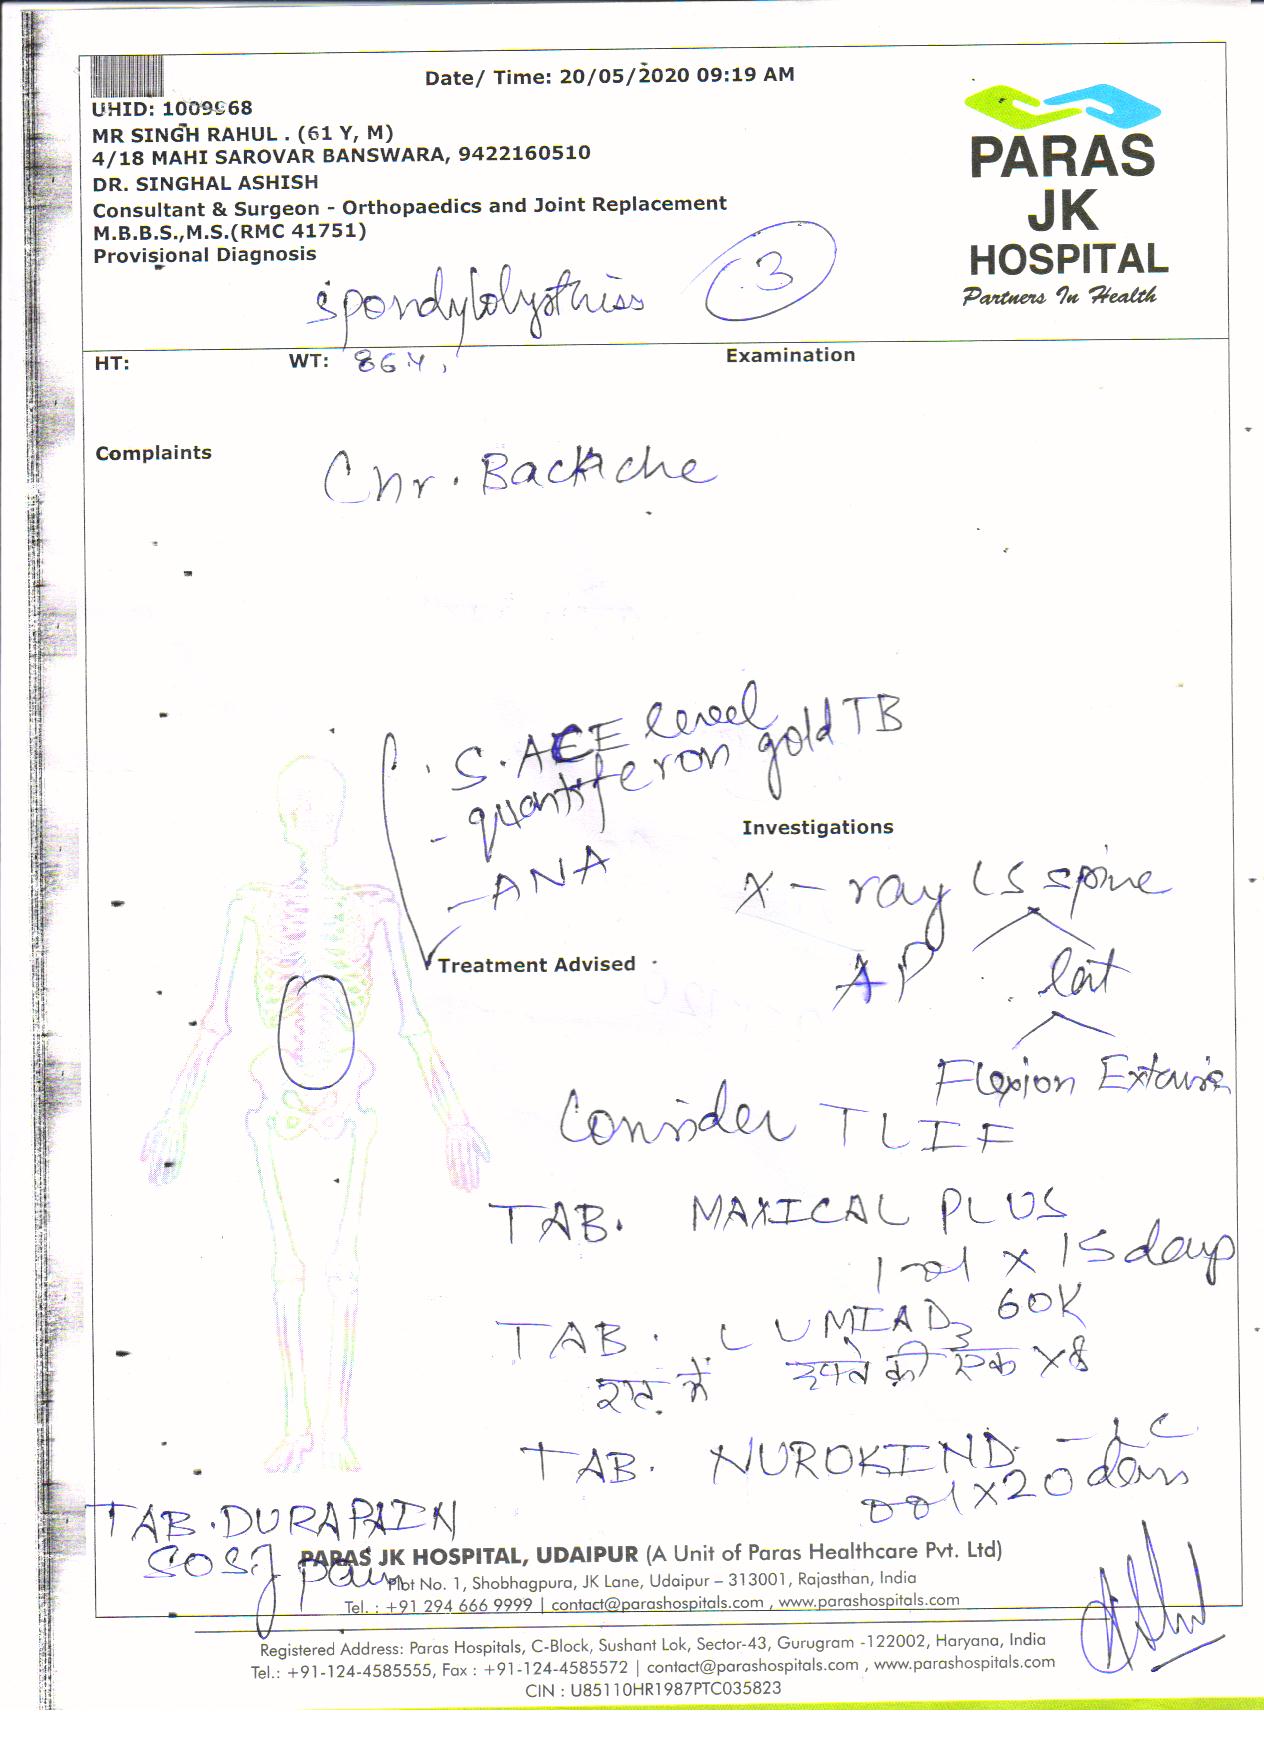 Date/ Time: 20/05/2020 09:19 AM
UHID: 1009968
MR SINGH RAHUL . (61 Y, M)
4/18 MAHI SAROVAR BANSWARA, 9422160510
DR. SINGHAL ASHISH
Consultant & Surgeon - Orthopaedics and Joint Replacement
M.B.B.S.,M.S.(RMC 41751)
Provisional Diagnosis
PARAS
JK
HOSPITAL
Partners In Health
spondylolysthiss
3
HT:
WT: 86
Examination
Complaints
Chr. Backache
S. ACE level
- quantiferon gold TB
- ANA
Investigations
X - ray LS spine
AP lat
Flexion
Treatment Advised
Consider TLIF
TAB. MAXICAL PLUS
1-01 x 15 days
TAB. LUMIA D3 60K
रात में हफ्ते की एक x 8
TAB. NUROKIND - LC
001 x 20 days
TAB. DURAPAIN
SOS if pain
PARAS JK HOSPITAL, UDAIPUR (A Unit of Paras Healthcare Pvt. Ltd)
Plot No. 1, Shobhagpura, JK Lane, Udaipur – 313001, Rajasthan, India
Tel. : +91 294 666 9999 | contact@parashospitals.com , www.parashospitals.com
Registered Address: Paras Hospitals, C-Block, Sushant Lok, Sector-43, Gurugram -122002, Haryana, India
Tel.: +91-124-4585555, Fax : +91-124-4585572 | contact@parashospitals.com , www.parashospitals.com
CIN : U85110HR1987PTC035823